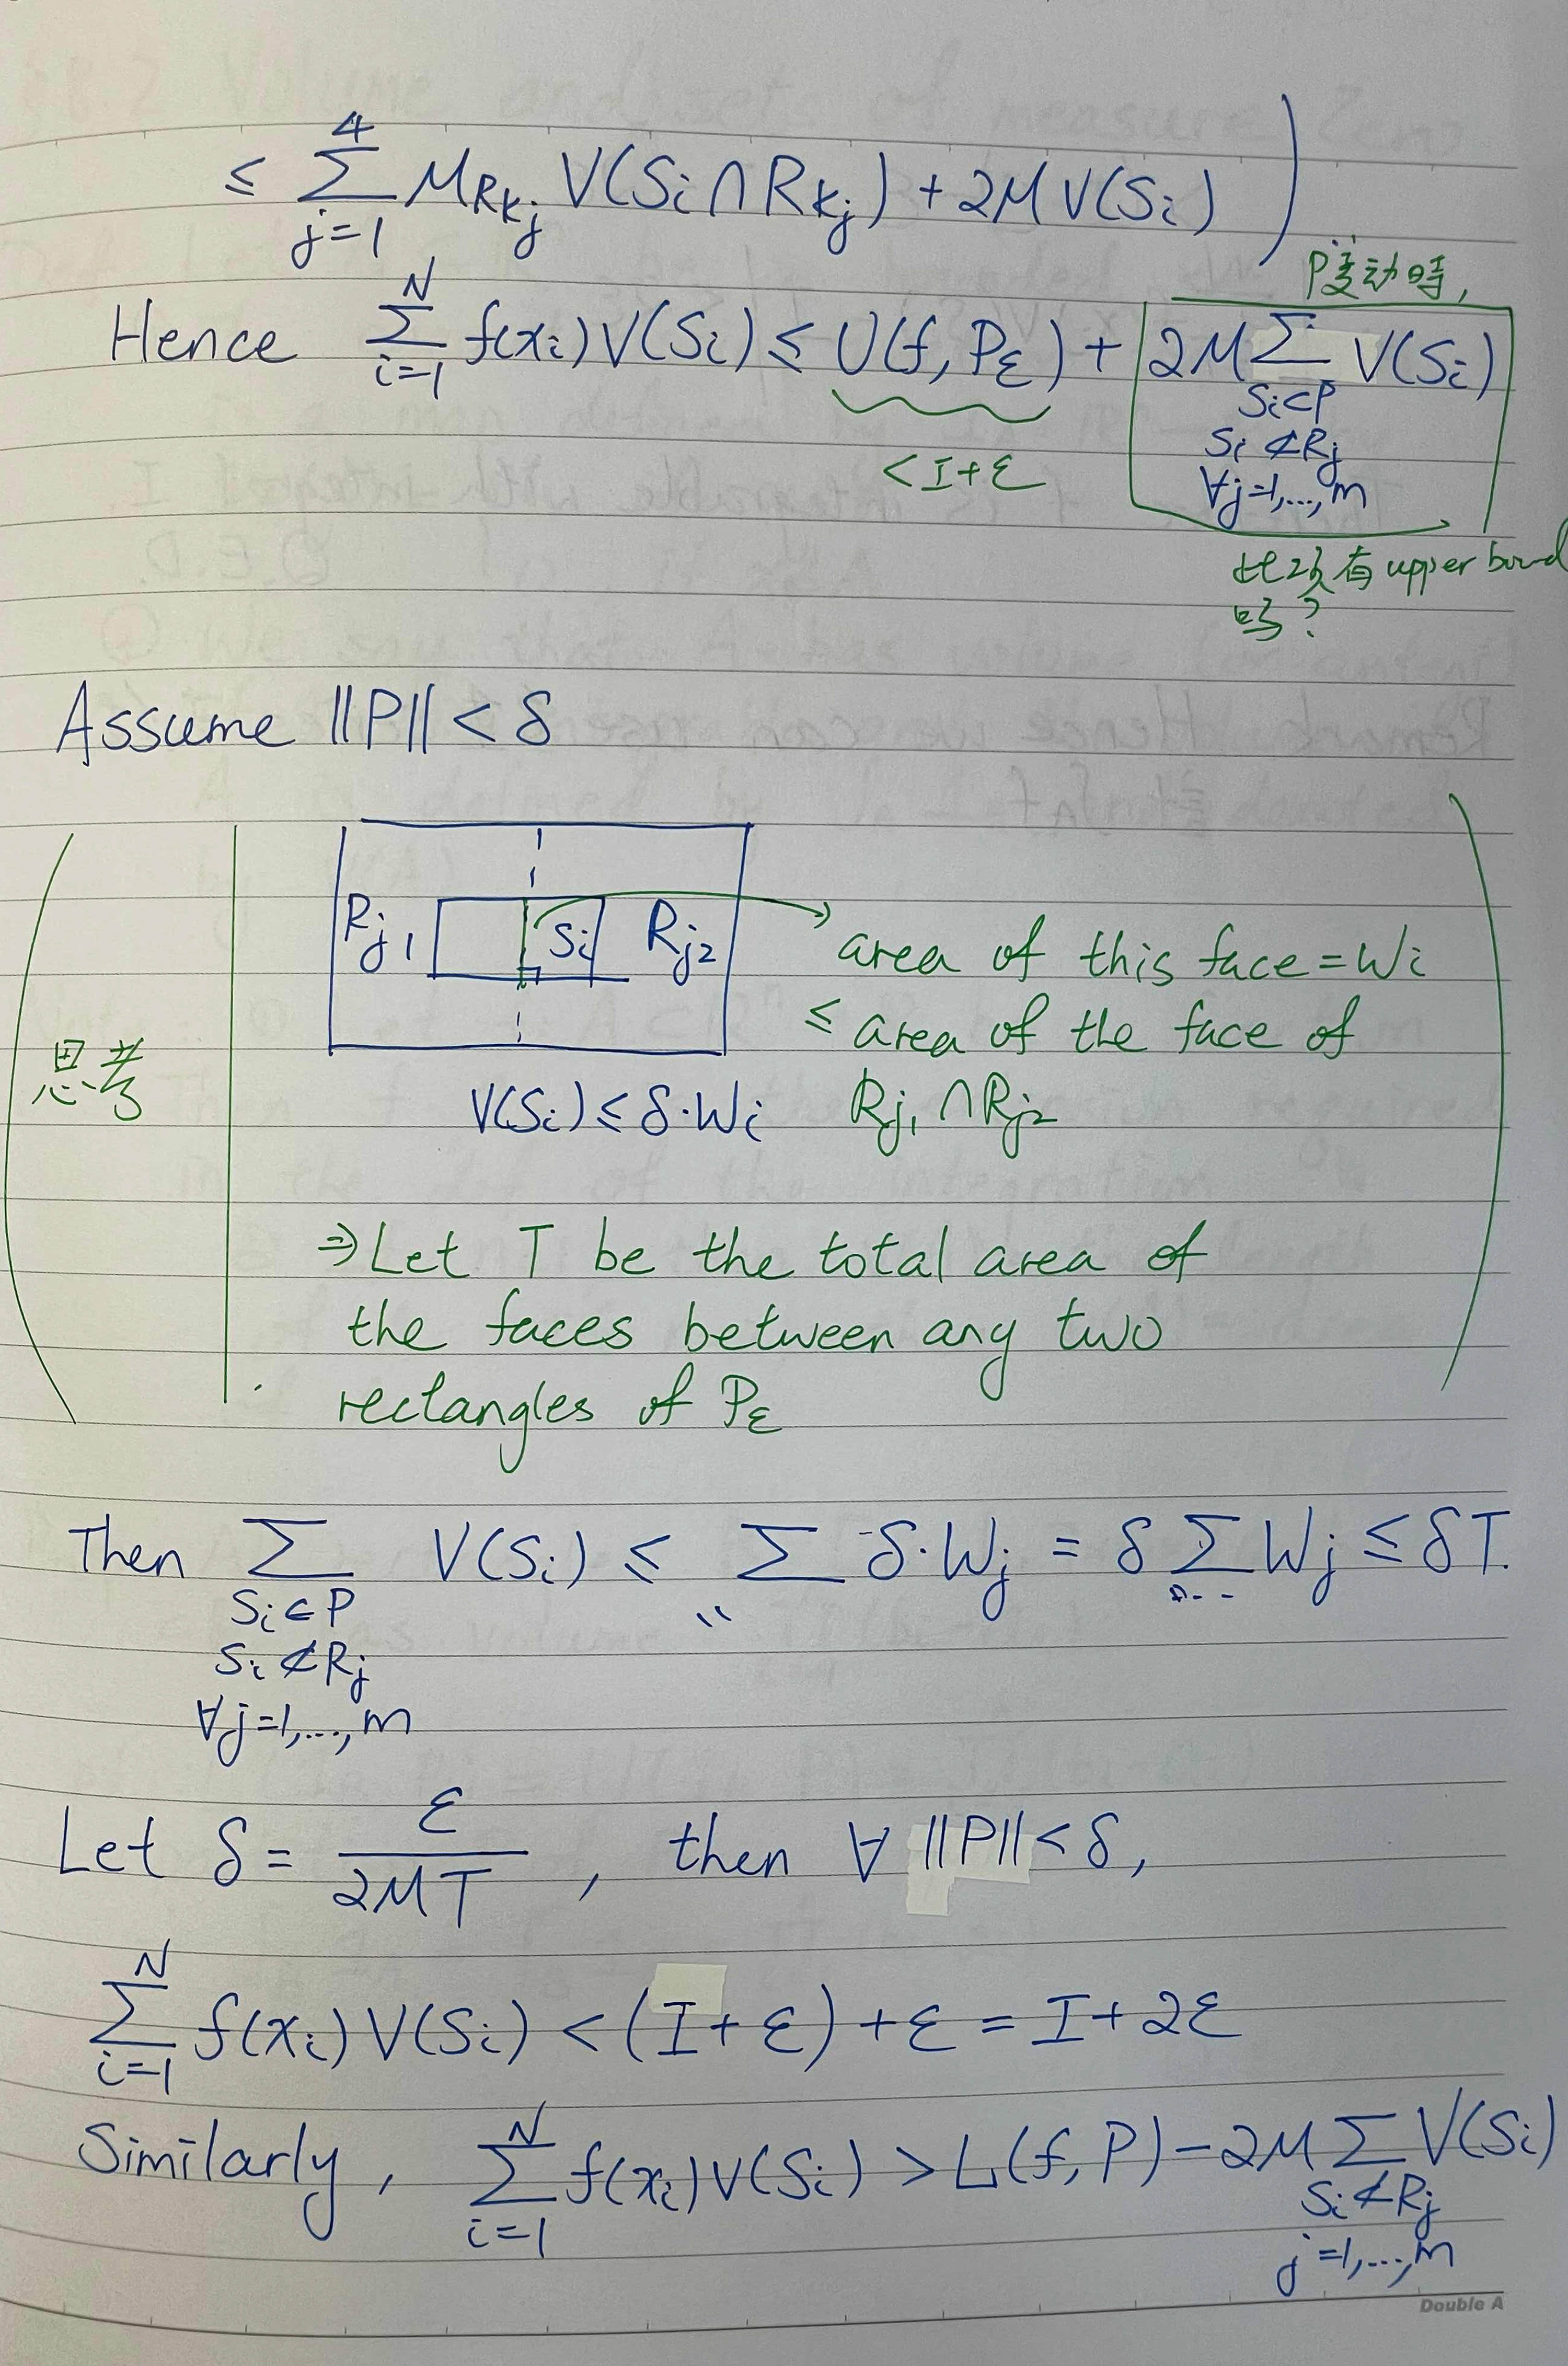 ≤ Σ_{j=1}^{4} M_{R_{k_j}} V(S_i ∩ R_{k_j}) + 2M V(S_i) )
P变动時,
Hence Σ_{i=1}^{N} f(x_i) V(S_i) ≤ U(f, P_ε) + 2M Σ_{S_i ⊂ P, S_i ⊄ R_j, ∀j=1,...,m} V(S_i)
< I + ε
此項有 upper bound
吗?
Assume ||P|| < δ
思考
R_{j_1} S_i R_{j_2}
area of this face = W_i
≤ area of the face of
R_{j_1} ∩ R_{j_2}
V(S_i) ≤ δ·W_i
⇒ Let T be the total area of
the faces between any two
rectangles of P_ε
Then Σ_{S_i ⊂ P, S_i ⊄ R_j, ∀j=1,...,m} V(S_i) ≤ Σ_{''} δ·W_j = δ Σ W_j ≤ δT.
Let δ = ε/(2MT), then ∀ ||P|| < δ,
Σ_{i=1}^{N} f(x_i) V(S_i) < (I + ε) + ε = I + 2ε
Similarly, Σ_{i=1}^{N} f(x_i) V(S_i) > L(f, P) − 2M Σ_{S_i ⊄ R_j, j=1,...,m} V(S_i)
Double A